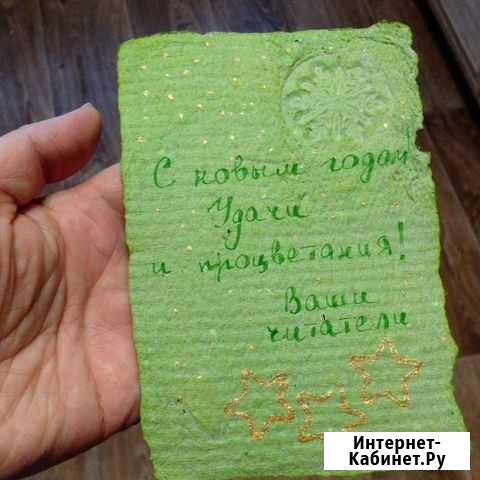 С новым годом
Удачи
и процветания!
Ваши
читатели
Интернет-
Кабинет.Ру